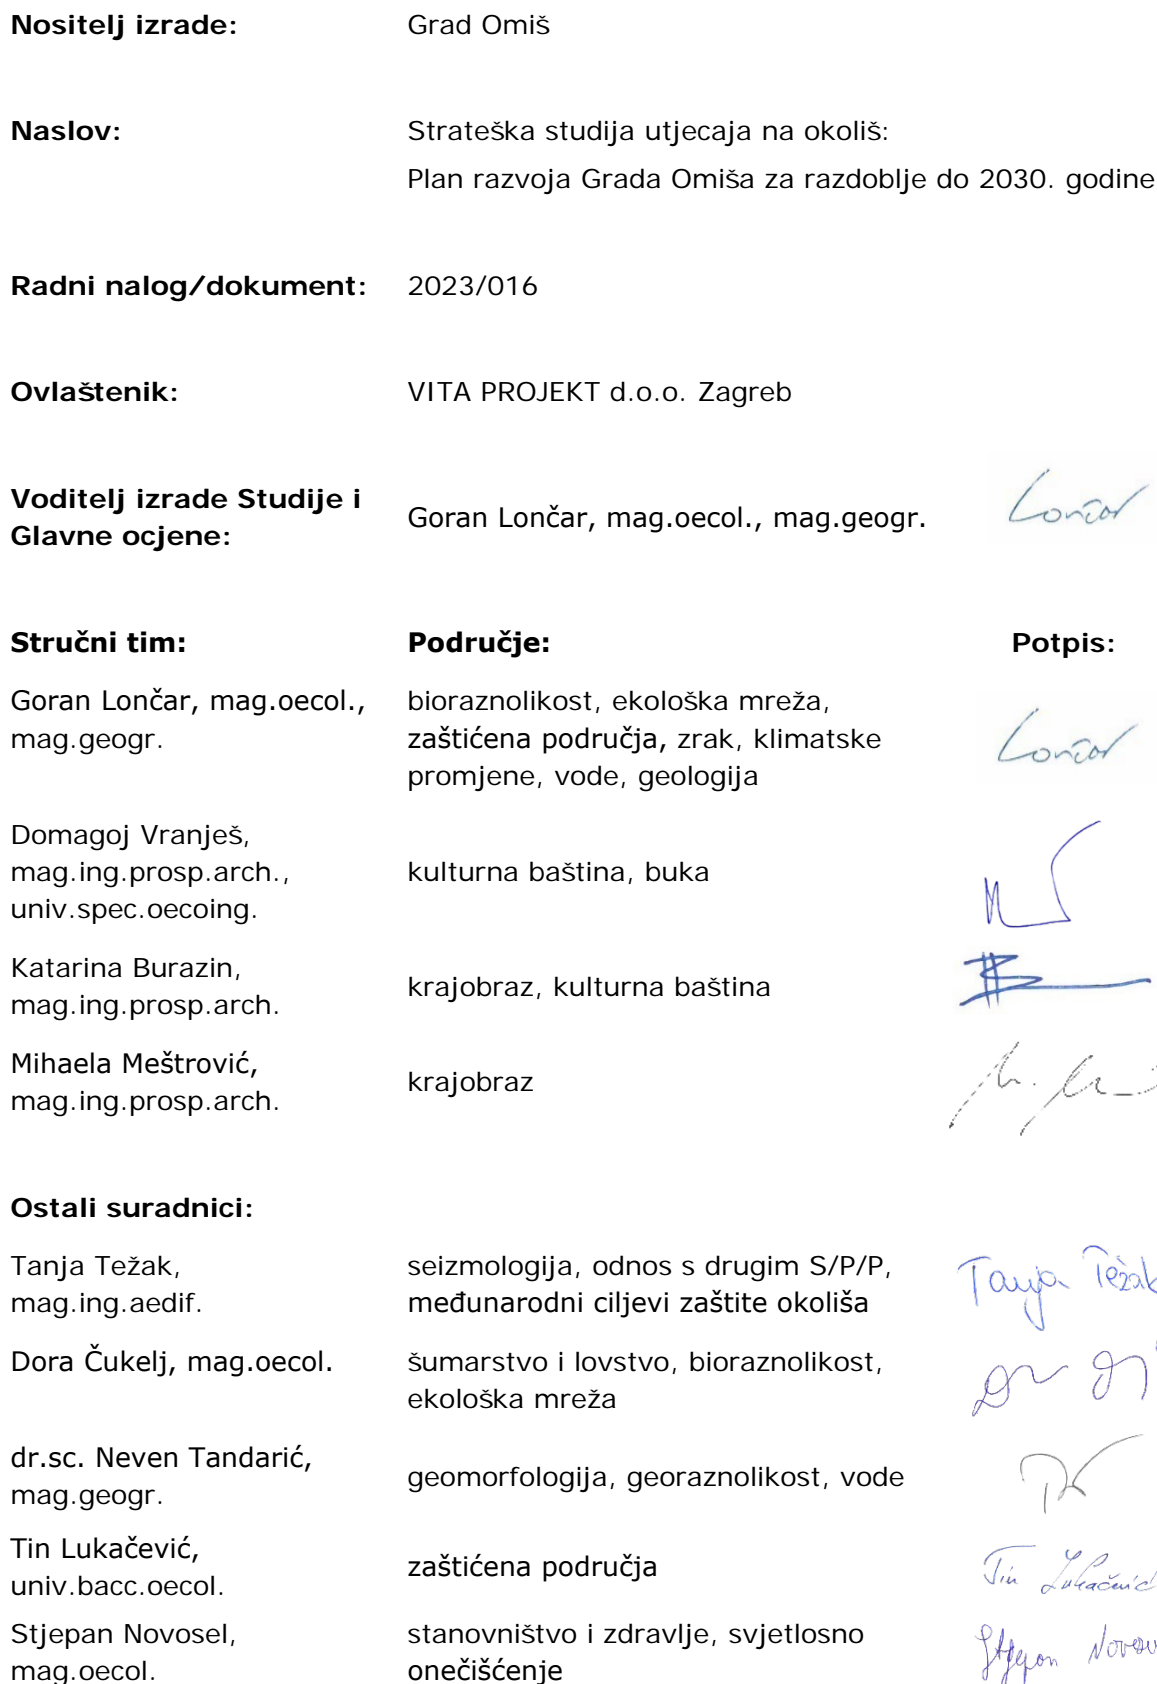 Nositelj izrade: Grad Omiš
Naslov: Strateška studija utjecaja na okoliš:
Plan razvoja Grada Omiša za razdoblje do 2030. godine
Radni nalog/dokument: 2023/016
Ovlaštenik: VITA PROJEKT d.o.o. Zagreb
Voditelj izrade Studije i
Glavne ocjene:
Goran Lončar, mag.oecol., mag.geogr.
Lončar
Stručni tim: Područje: Potpis:
Goran Lončar, mag.oecol.,
mag.geogr.
bioraznolikost, ekološka mreža,
zaštićena područja, zrak, klimatske
promjene, vode, geologija
Lončar
Domagoj Vranješ,
mag.ing.prosp.arch.,
univ.spec.oecoing.
kulturna baština, buka
Katarina Burazin,
mag.ing.prosp.arch.
krajobraz, kulturna baština
Mihaela Meštrović,
mag.ing.prosp.arch.
krajobraz
Ostali suradnici:
Tanja Težak,
mag.ing.aedif.
seizmologija, odnos s drugim S/P/P,
međunarodni ciljevi zaštite okoliša
Tanja Težak
Dora Čukelj, mag.oecol.
šumarstvo i lovstvo, bioraznolikost,
ekološka mreža
dr.sc. Neven Tandarić,
mag.geogr.
geomorfologija, georaznolikost, vode
Tin Lukačević,
univ.bacc.oecol.
zaštićena područja
Tin Lukačević
Stjepan Novosel,
mag.oecol.
stanovništvo i zdravlje, svjetlosno
onečišćenje
Stjepan